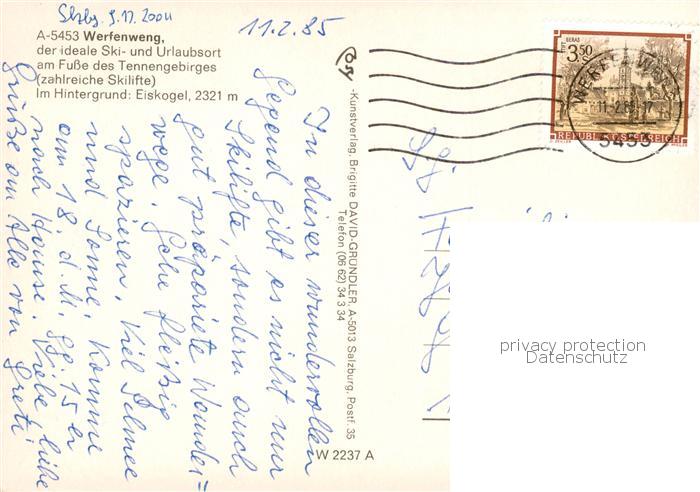 Slzbg. 9.11.2004
11.2.85
A-5453 Werfenweng,
der ideale Ski- und Urlaubsort
am Fuße des Tennengebirges
(zahlreiche Skilifte)
Im Hintergrund: Eiskogel, 2321 m
In dieser wundervollen
Gegend gibt es nicht nur
Skilifte, sondern auch
gut präpariete Wander=
wege. Gehe fleißig
spazieren. Viel Schnee
und Sonne. Komme
am 18. d. M. gg. 15 er
nach Hause. Liebe
Grüße an Alle von
Greti
-Kunstverlag, Brigitte DAVID-GRÜNDLER, A-5013 Salzburg, Postf. 35
Telefon (06 62) 34 3 34
W 2237 A
STIFT GERAS
3.50
S
REPUBLIK ÖSTERREICH
WERFENWENG
11.-2.85-17
5453
privacy protection
Datenschutz